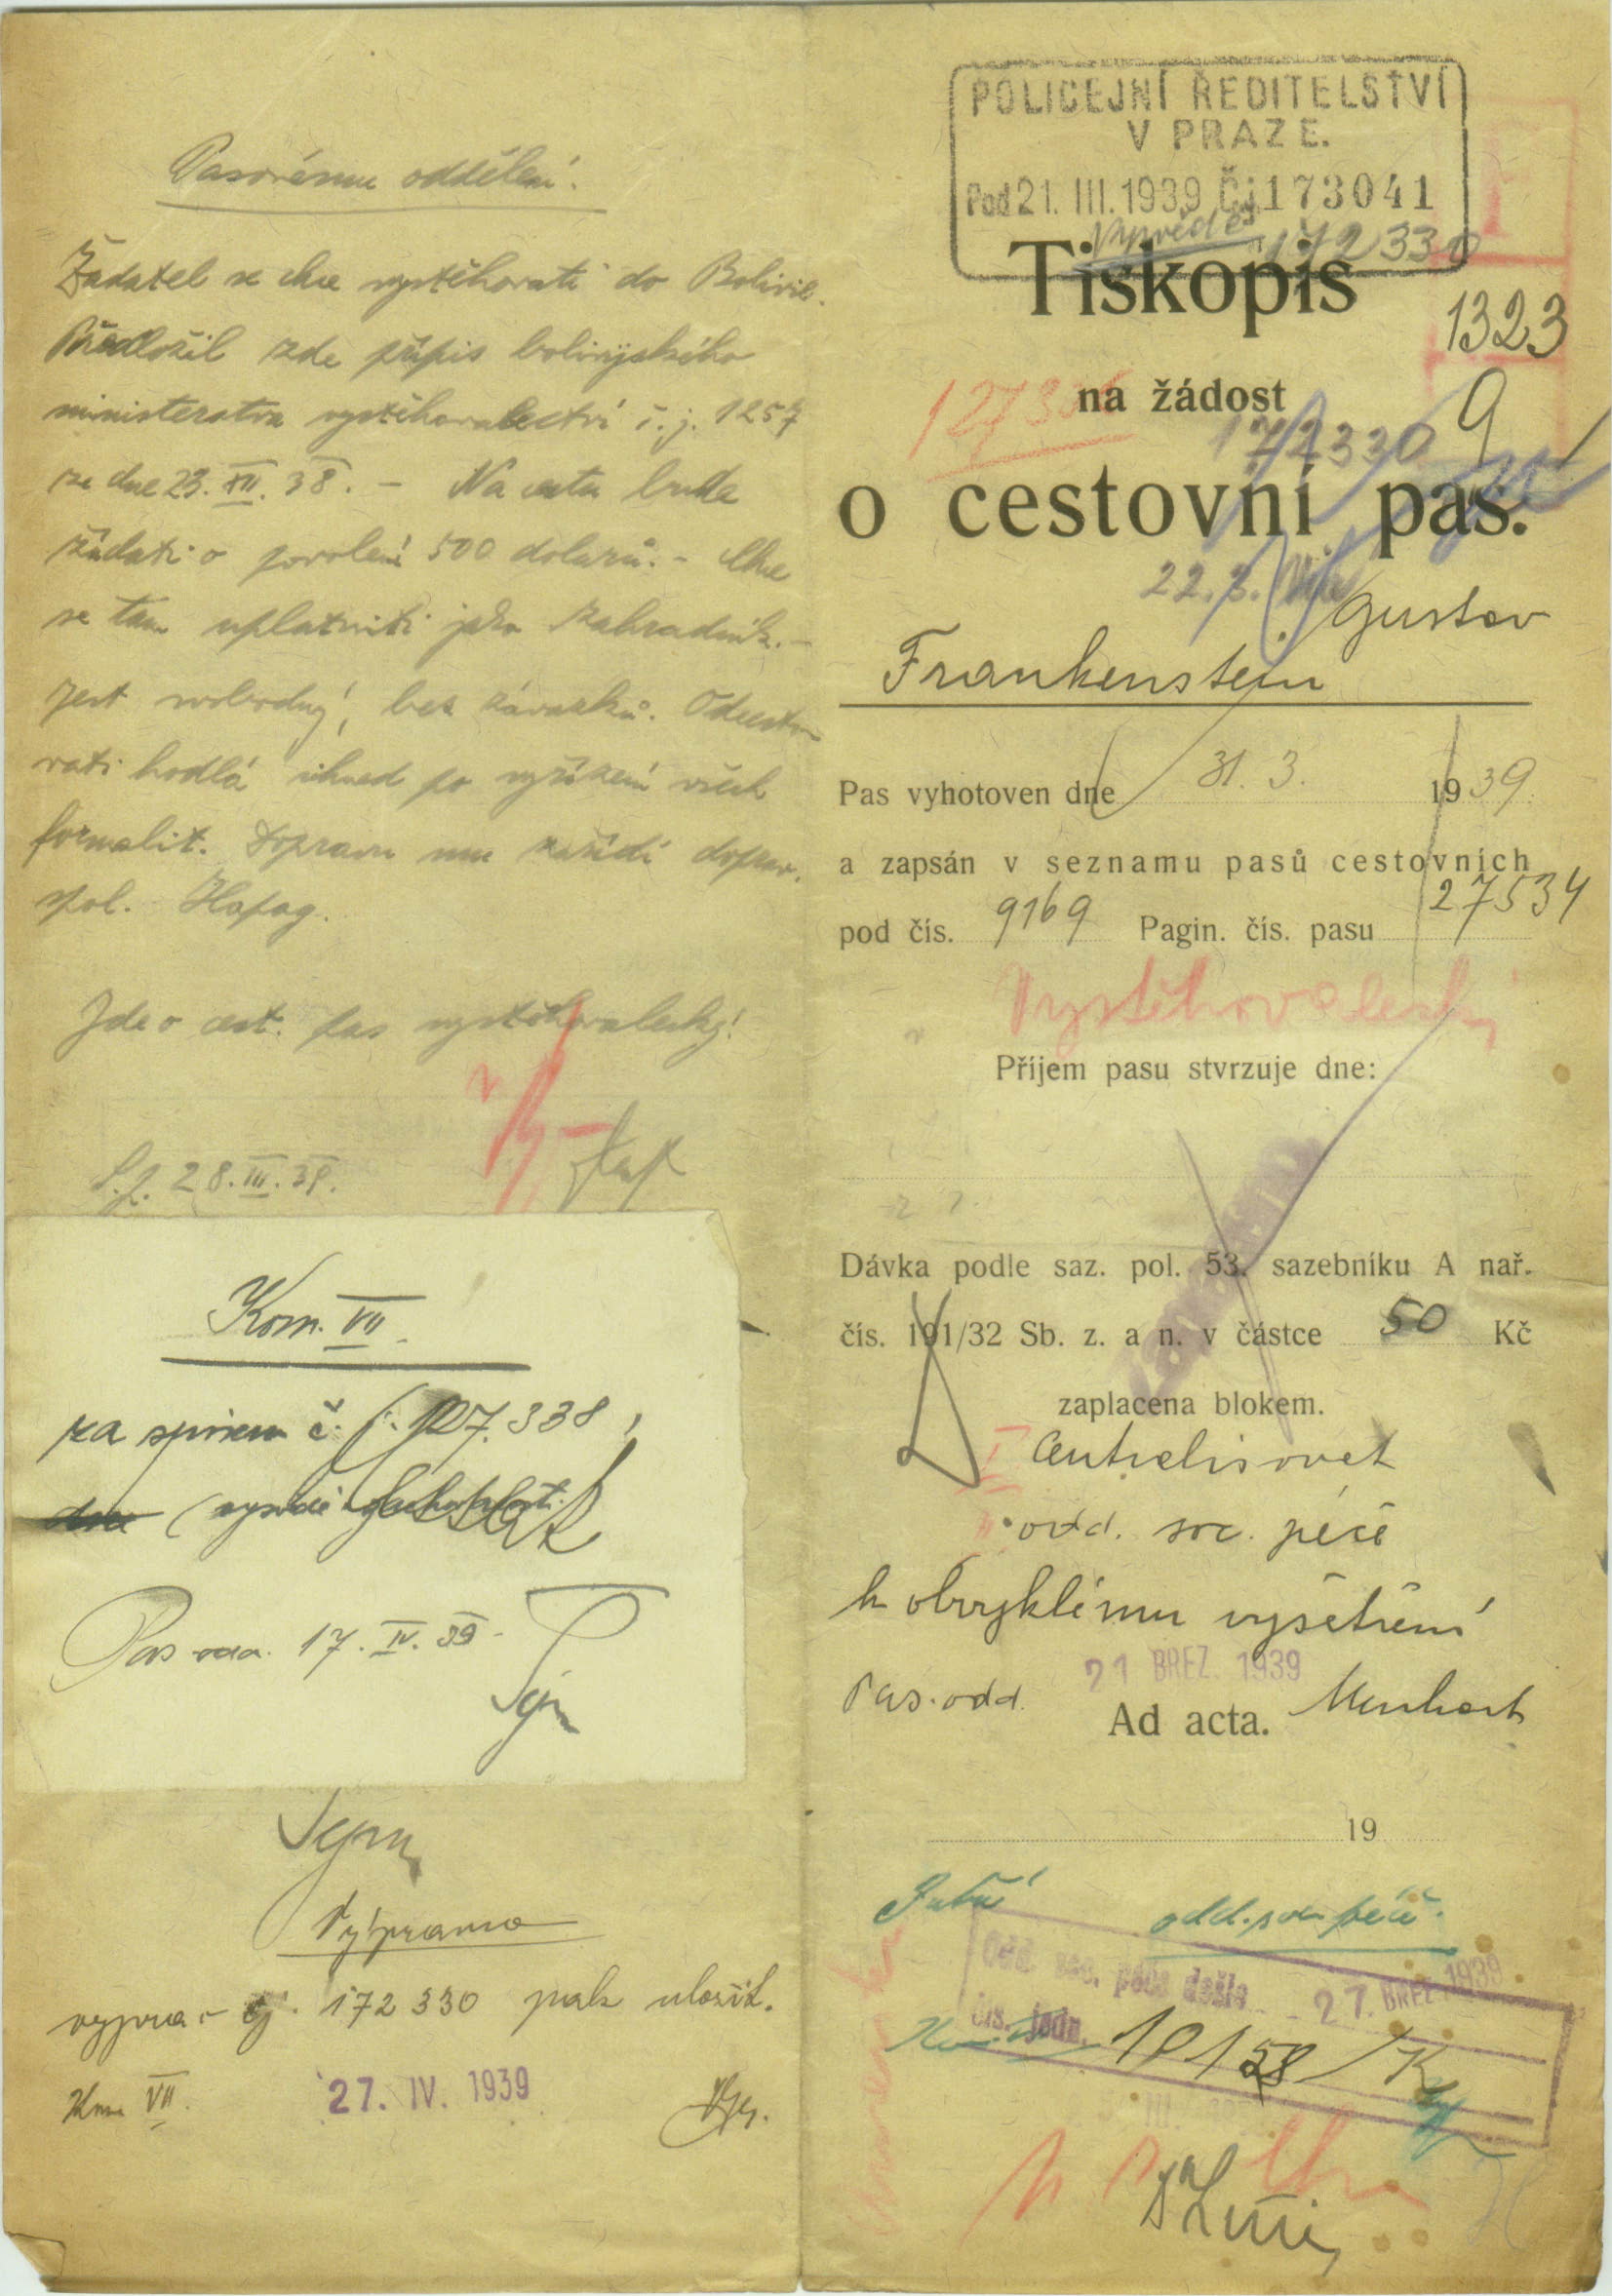 Pasovému oddělení.
Žadatel se chce vystěhovati do Bolivie.
Předložil zde přípis bolivijského
ministerstva vystěhovalectví č. j. 1257
ze dne 23. XII. 38. – Na cestu bude
žádati o povolení 500 dolarů. – Chce
se tam uplatniti jako zahradník. –
Jest svobodný, bez závazků. Odcesto
vati hodlá ihned po vyřízení všech
formalit. Dopravu mu zařídí doprav.
spol. Hapag.
Jde o cest. pas vystěhovalecký!
28. III. 39.
Kom. VII.
za spisem č. j. 127.338,
Pas 17. IV. 39
Výprava
172 330 pak uložit.
Kom VII.
27. IV. 1939
POLICEJNÍ ŘEDITELSTVÍ
V PRAZE.
Pod 21. III. 1939 Čj 173041
172330
Tiskopis
1323
na žádost
9
172330
o cestovní pas.
22. 3.
Gustav
Frankenstein
Pas vyhotoven dne 31. 3. 1939
a zapsán v seznamu pasů cestovních
pod čís. 9169 Pagin. čís. pasu 27534
Vystěhovalecký
Příjem pasu stvrzuje dne:
Dávka podle saz. pol. 53. sazebníku A nař.
čís. 191/32 Sb. z. a n. v částce 50 Kč
zaplacena blokem.
I Centralisovat
II odd. soc. péče
k obvyklému vyšetření
21 BŘEZ. 1939
Pas. odd.
Ad acta.
19
odd. soc. péče.
Odd. soc. péče došlo 27. BŘEZ 1939
čís. jedn. 10158/K